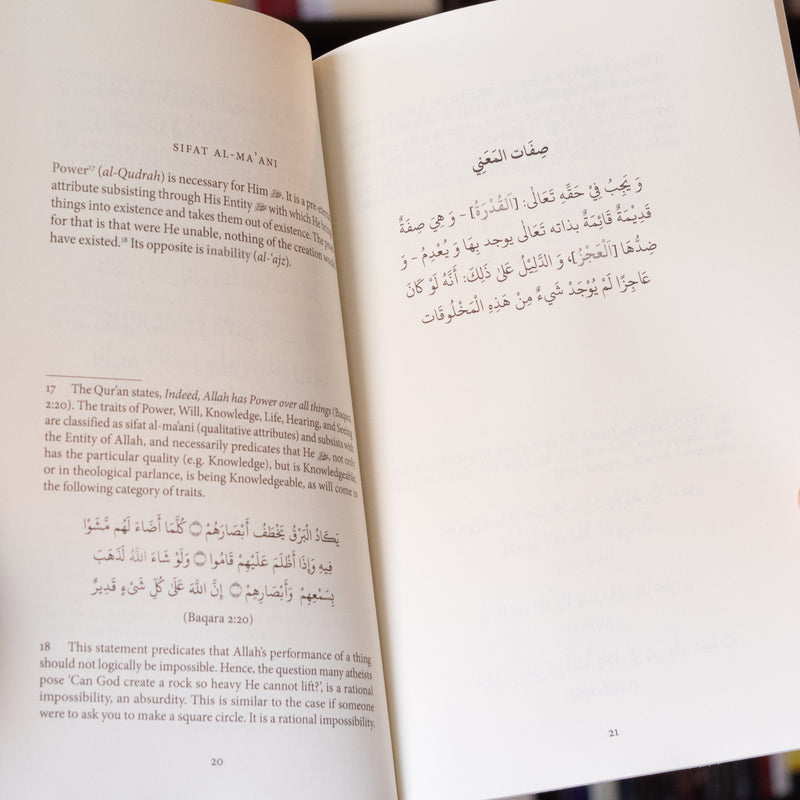 SIFAT AL-MAʾANI
Power¹⁷ (al-Qudrah) is necessary for Him ﷻ. It is a pre-eternal
attribute subsisting through His Entity ﷻ with which He brings
things into existence and takes them out of existence. The proof
for that is that were He unable, nothing of the creation would
have existed.¹⁸ Its opposite is inability (al-ʿajz).
17 The Qur'an states, Indeed, Allah has Power over all things (Baqara
2:20). The traits of Power, Will, Knowledge, Life, Hearing, and Seeing
are classified as sifat al-ma'ani (qualitative attributes) and subsists with
the Entity of Allah, and necessarily predicates that He ﷻ, not only
has the particular quality (e.g. Knowledge), but is Knowledgeable,
or in theological parlance, is being Knowledgeable, as will come in
the following category of traits.
يَكَادُ الْبَرْقُ يَخْطَفُ أَبْصَارَهُمْ ۝ كُلَّمَا أَضَاءَ لَهُم مَّشَوْا
فِيهِ وَإِذَا أَظْلَمَ عَلَيْهِمْ قَامُوا ۝ وَلَوْ شَاءَ اللَّهُ لَذَهَبَ
بِسَمْعِهِمْ وَأَبْصَارِهِمْ ۝ إِنَّ اللَّهَ عَلَىٰ كُلِّ شَيْءٍ قَدِيرٌ
(Baqara 2:20)
18 This statement predicates that Allah's performance of a thing
should not logically be impossible. Hence, the question many atheists
pose 'Can God create a rock so heavy He cannot lift?', is a rational
impossibility, an absurdity. This is similar to the case if someone
were to ask you to make a square circle. It is a rational impossibility.
20
صِفَات المَعَنِي
وَ يَجِبُ فِيْ حَقِّهِ تَعَالَى: [اَلقُدْرَةُ] – وَ هِيَ صِفَةٌ
قَدِيْمَةٌ قَائِمَةٌ بذاته تَعَالَى يوجد بِهَا وَ يُعْدِمُ – وَ
ضِدُّهَا [اَلْعَجْزُ]، وَ الدَّلِيْلُ عَلىٰ ذَلِكَ: أَنَّهُ لَوْ كَانَ
عَاجِزًا لَمْ يُوْجَدْ شَيءٌ مِنْ هَذِهِ الْمَخْلُوقَات
21